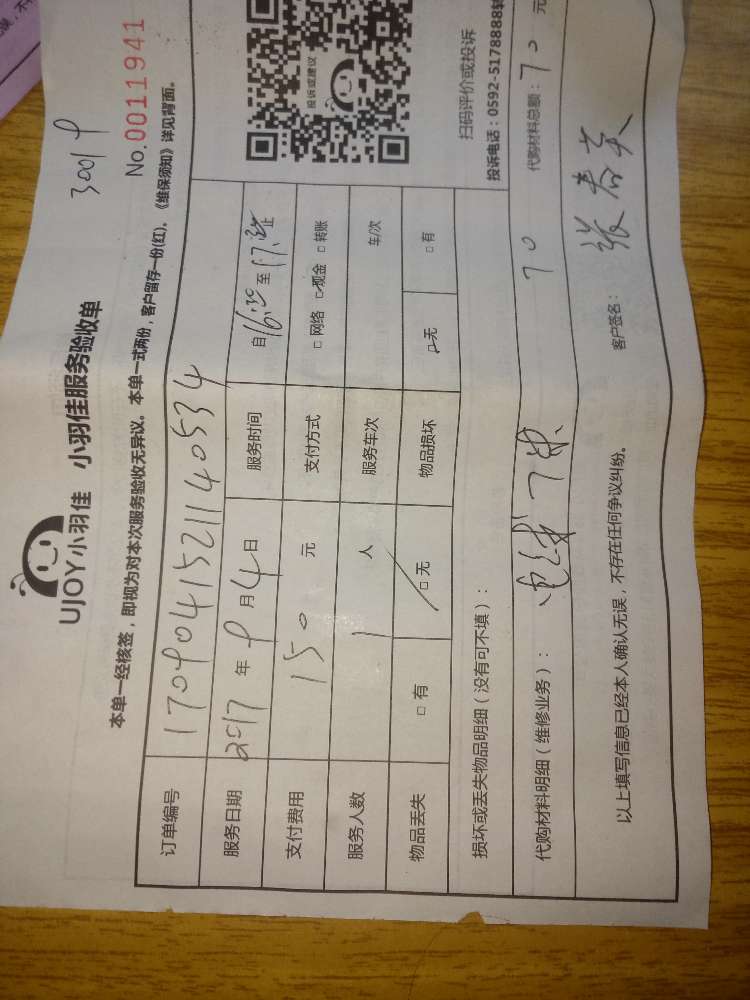 30019
UJOY小羽佳 小羽佳服务验收单
No.0011941
本单一经核签，即视为对本次服务验收无异议。本单一式两份，客户留存一份(红)，《维保须知》详见背面。
订单编号 170904152114053 4
服务日期 2017 年 9 月 4 日 服务时间 自 16:20 至 17: 止
支付费用 150 元 支付方式 □ 网络 □ 现金 □ 转账
服务人数 1 人 服务车次 车/次
物品丢失 □ 有 □ 无 物品损坏 □ 无 □ 有
投诉或建议
扫码评价或投诉
投诉电话：0592-5178888转
损坏或丢失物品明细（没有可不填）：
代购材料明细（维修业务）： 70 代购材料总额：70 元
以上填写信息已经本人确认无误，不存在任何争议纠纷。 客户签名： 张春英